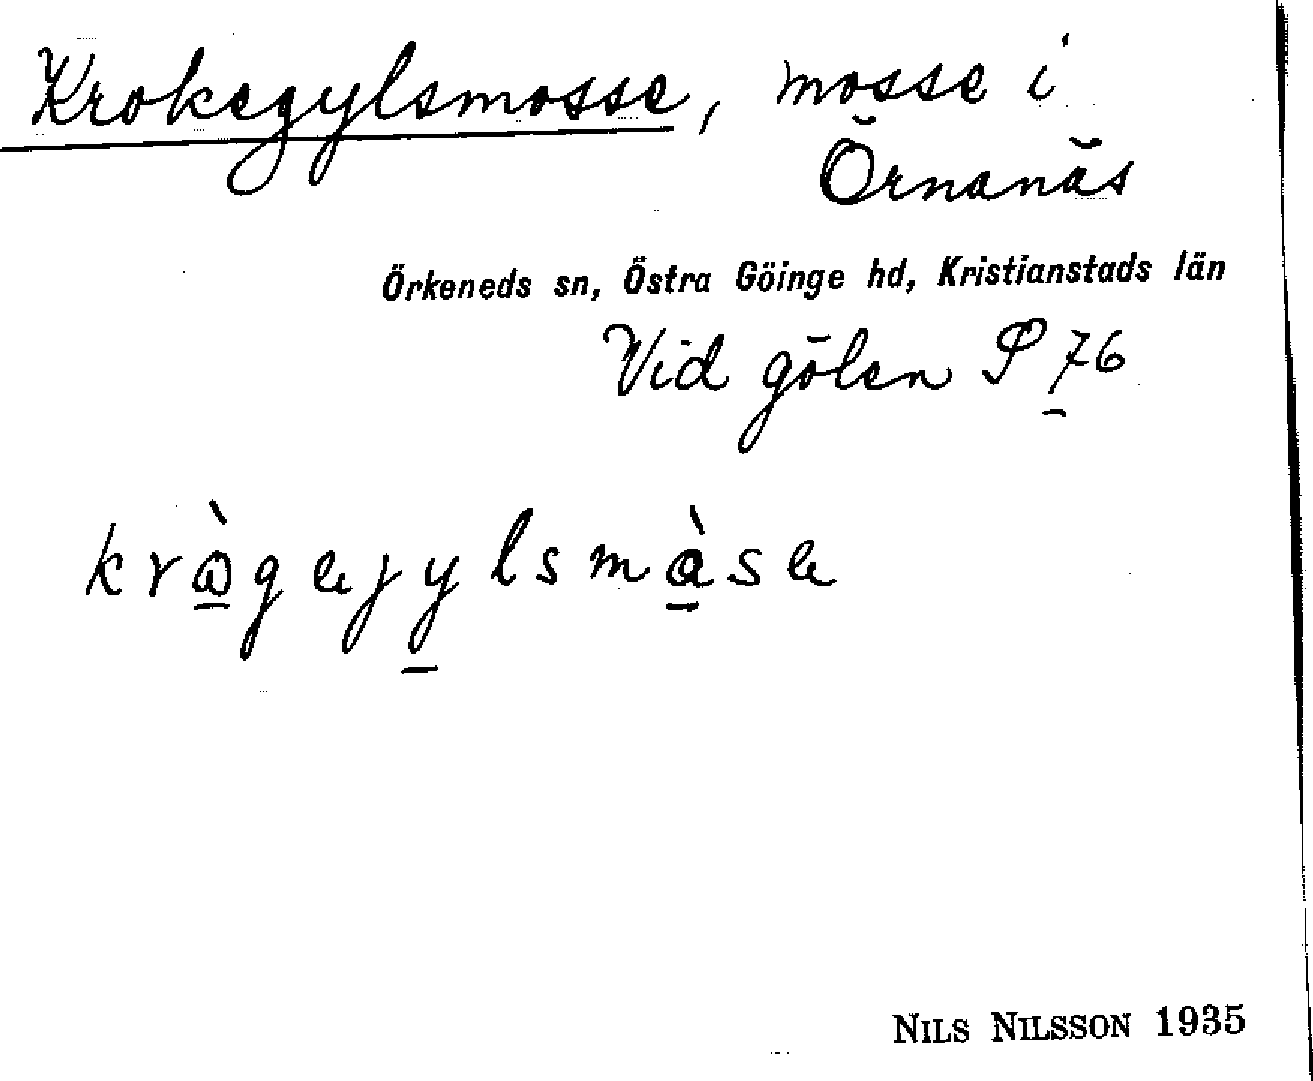 Krokegylsmosse, mosse i
Örnanäs
Örkeneds sn, Östra Göinge hd, Kristianstads län
Vid gölen P 76
kràgejylsmàse
NILS NILSSON 1935